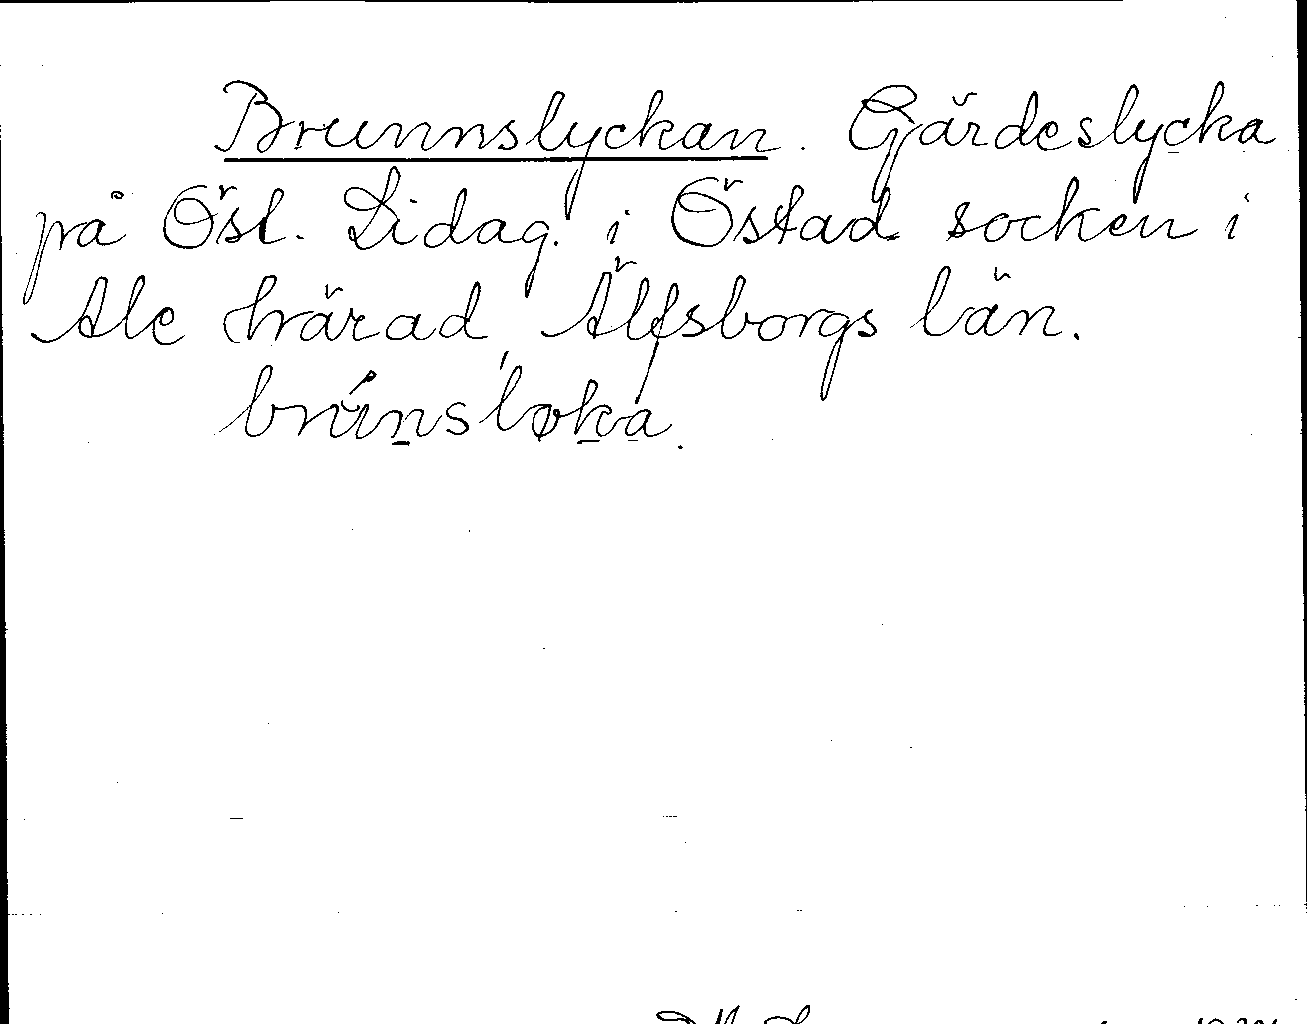 Brunnslyckan. Gärdeslycka
på Östl. Lidag. i Östad socken i
Ale härad, Älfsborgs län.
brúnsløka.